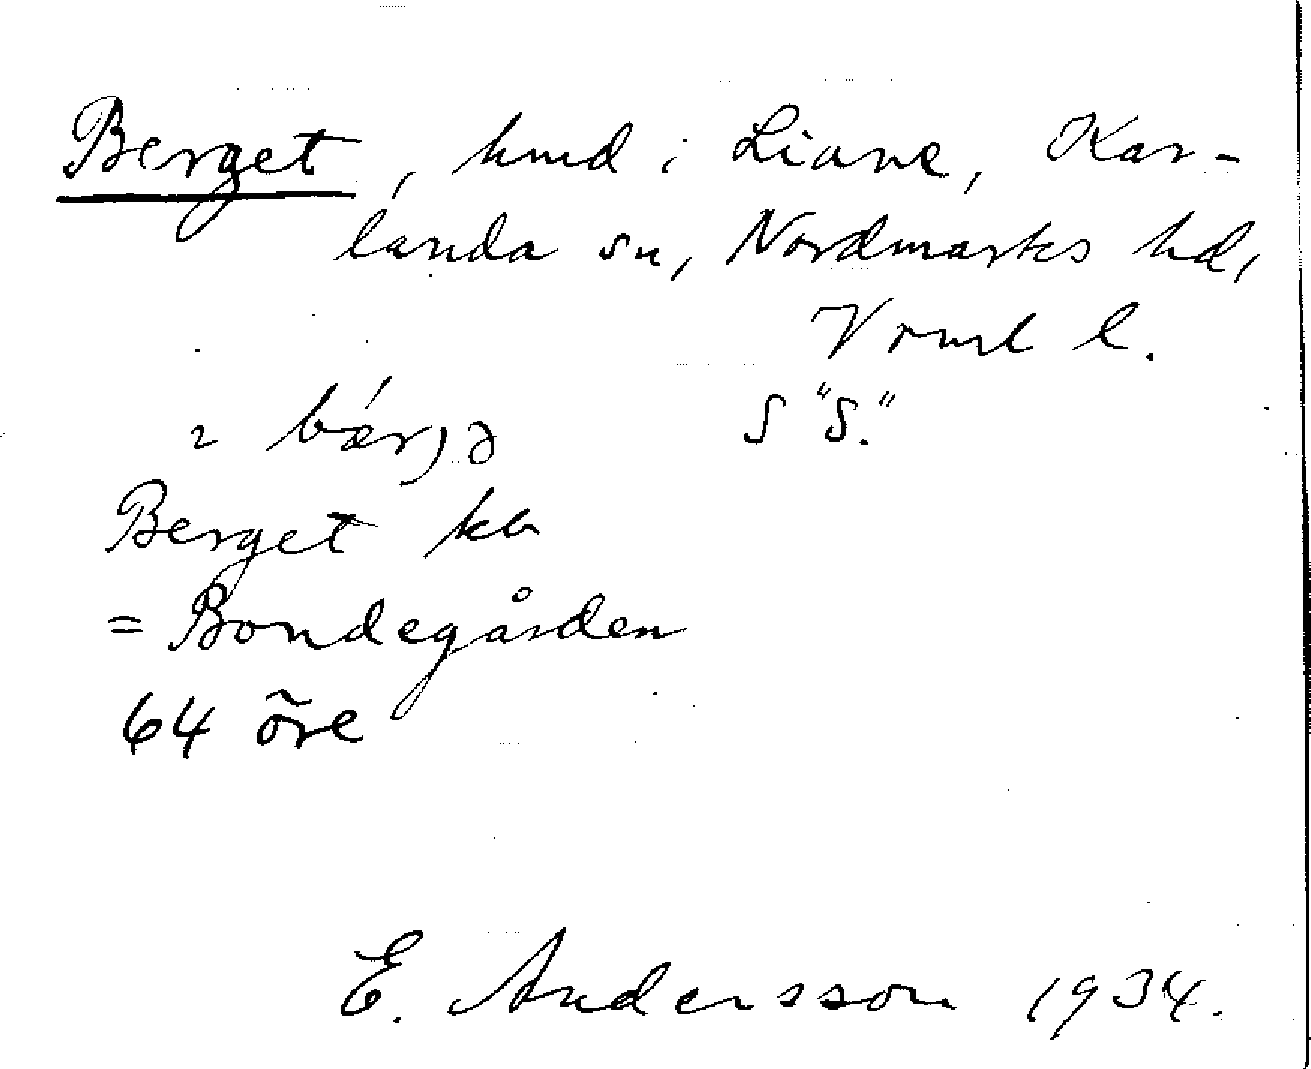 Berget, hmd i Liane, Kar-
landa sn, Nordmarks hd,
Vrml l.
2 bǽr, ə S "S."
Berget kb
= Bondegården
64 öre
E. Andersson 1934.